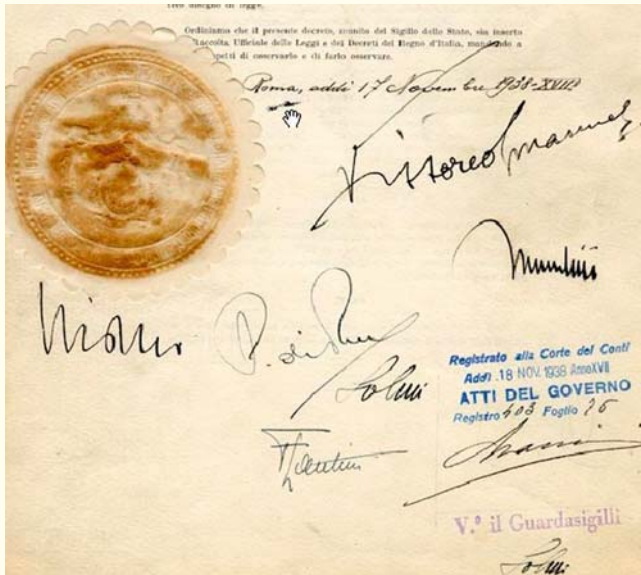 Ordiniamo che il presente decreto, munito del Sigillo dello Stato, sia inserto
Raccolta Ufficiale delle Leggi e dei Decreti del Regno d'Italia, mandando a
spetti di osservarlo e di farlo osservare.
Roma, addì 17 Novembre 1938-XVII°
Vittorio Emanuele
Mussolini
Ciano P. di Revel
Solmi
Lantini
Registrato alla Corte dei Conti
Addì 18 NOV. 1938 Anno XVII
ATTI DEL GOVERNO
Registro 403 Foglio 76
V.° il Guardasigilli
Solmi